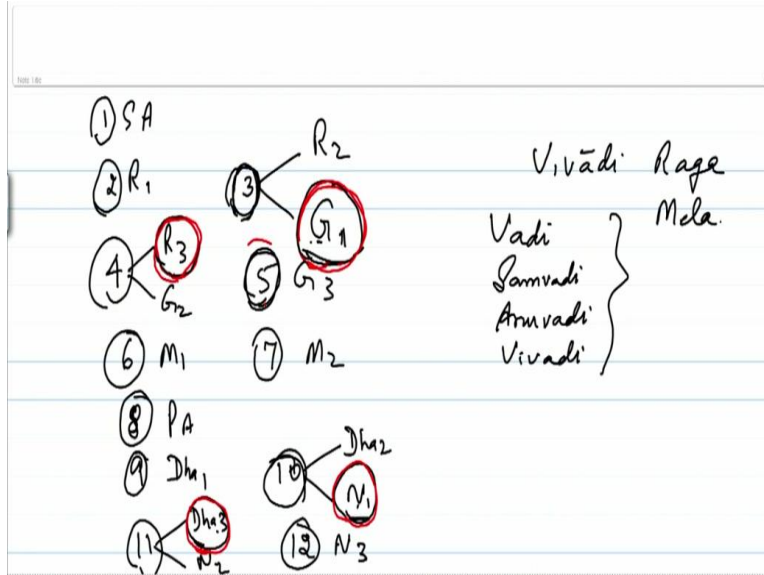 ① SA
② R1
③ R2
G1
④ R3
G2
⑤ G3
⑥ M1
⑦ M2
⑧ PA
⑨ Dha1
⑩ Dha2
N1
⑪ Dha3
N2
⑫ N3
Vivādi Raga
Mela.
Vadi
Samvadi
Anuvadi
Vivadi